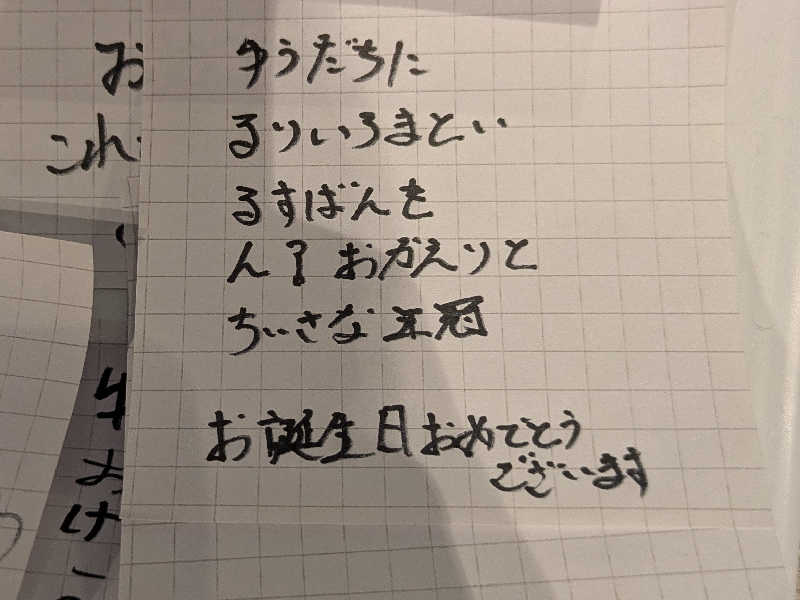 ゆうだちに
るりいろまとい
るすばんを
ん？おかえりと
ちいさな王冠
お誕生日おめでとう
ございます
お
これ